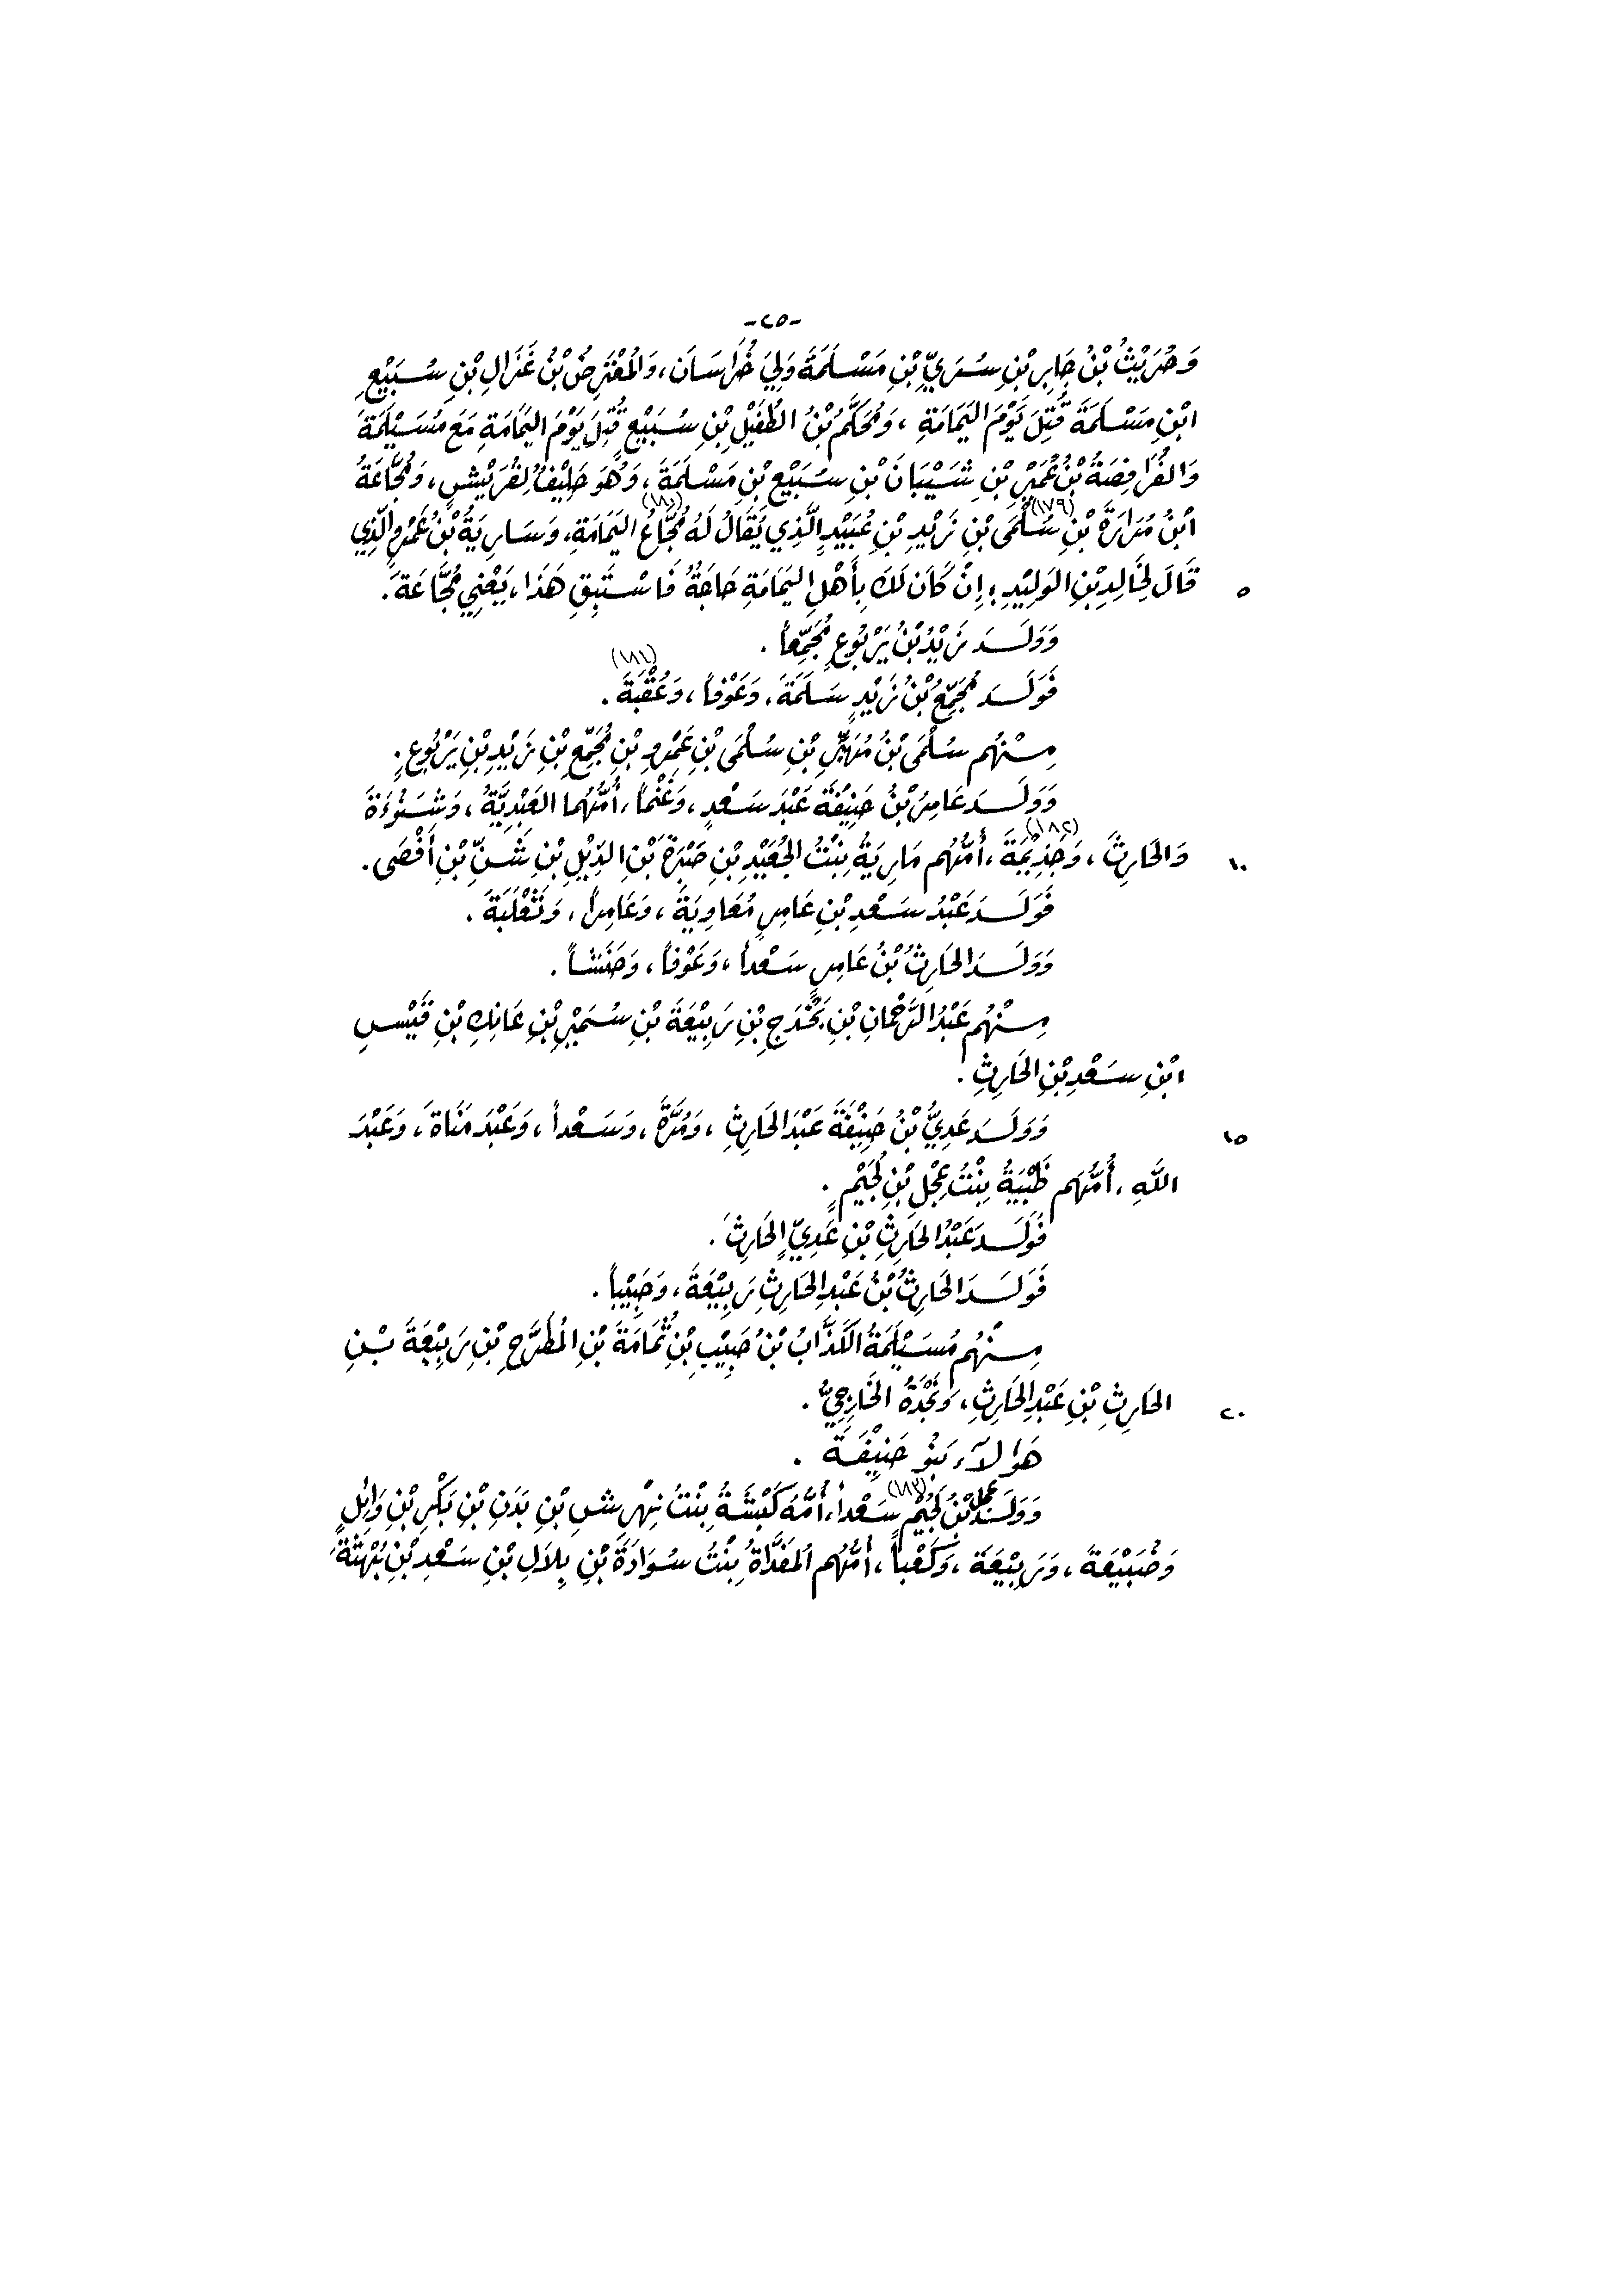 -٢٥-
وَحُرَيْثُ بْنُ جَابِرِ بْنِ سُرَيِّ بْنِ مَسْلَمَةَ وَلِيَ خُرَاسَانَ، وَالمُعْتَرِضُ بْنُ غَزَالِ بْنِ سُبَيْعِ
ابْنِ مَسْلَمَةَ قُتِلَ يَوْمَ اليَمَامَةِ، وَمُحَكَّمُ بْنُ الطُّفَيْلِ بْنِ سُبَيْعٍ قُتِلَ يَوْمَ اليَمَامَةِ مَعَ مُسَيْلِمَةَ
وَالفُرَافِصَةُ بْنُ عُمَيْرِ بْنِ شَيْبَانَ بْنِ سُبَيْعِ بْنِ مَسْلَمَةَ، وَهُوَ حَلِيْفٌ لِقُرَيْشٍ، وَمُجَّاعَةُ
ابْنُ مُرَارَةَ بْنِ سَلْمَى (١٧٩) بْنِ زَيْدِ بْنِ عُبَيْدٍ الَّذِي يُقَالُ لَهُ مُجَّاعُ (١٨٠) اليَمَامَةِ، وَسَارِيَةُ بْنُ عَمْرٍو الَّذِي
قَالَ لِخَالِدِ بْنِ الوَلِيْدِ: إِنْ كَانَ لَكَ بِأَهْلِ اليَمَامَةِ حَاجَةٌ فَاسْتَبِقِ هَذَا، يَعْنِي مُجَّاعَةَ. ٥
وَوَلَدَ زَيْدُ بْنُ يَرْبُوعٍ مُجَمِّعاً.
فَوَلَدَ مُجَمِّعُ بْنُ زَيْدٍ سَلَمَةَ، وَعَوْفاً، وَعُقْبَةَ (١٨١).
مِنْهُم سُلْمَى بْنُ مُهَيِّرِ بْنِ سُلْمَى بْنِ عَمْرِو بْنِ مُجَمِّعِ بْنِ زَيْدِ بْنِ يَرْبُوعٍ.
وَوَلَدَ عَامِرُ بْنُ حَنِيْفَةَ عَبْدَ سَعْدٍ، وَغَنْماً، أُمُّهُما العَبْدِيَّةُ، وَشَنُوْءَةَ
وَالحَارِثَ، وَجَذِيْمَةَ (١٨٢)، أُمُّهُم مَارِيَةُ بِنْتُ الجُعَيْدِ بْنِ صَبْرَةَ بْنِ الدِّيْلِ بْنِ شَنِّ بْنِ أَفْصَى. ١٠
فَوَلَدَ عَبْدُ سَعْدِ بْنِ عَامِرٍ مُعَاوِيَةَ، وَعَامِراً، وَثَعْلَبَةَ.
وَوَلَدَ الحَارِثُ بْنُ عَامِرٍ سَعْداً، وَعَوْفاً، وَحَنَشاً.
مِنْهُم عَبْدُ الرَّحْمَانِ بْنِ بَحْدَجِ بْنِ رَبِيْعَةَ بْنِ سُمَيْرِ بْنِ عَاتِكِ بْنِ قَيْسِ
ابْنِ سَعْدِ بْنِ الحَارِثِ.
وَوَلَدَ عَدِيُّ بْنُ حَنِيْفَةَ عَبْدَ الحَارِثِ، وَمُرَّةَ، وَسَعْداً، وَعَبْدَ مَنَاةَ، وَعَبْدَ ١٥
اللَّهِ، أُمُّهُم ظَبْيَةُ بِنْتُ عِجْلِ بْنِ لُجَيْمٍ.
فَوَلَدَ عَبْدُ الحَارِثِ بْنِ عَدِيٍّ الحَارِثَ.
فَوَلَدَ الحَارِثُ بْنُ عَبْدِ الحَارِثِ رَبِيْعَةَ، وَحَبِيْباً.
مِنْهُم مُسَيْلِمَةُ الكَذَّابُ بْنُ حَبِيْبِ بْنِ ثُمَامَةَ بْنِ المُطَرَّحِ بْنِ رَبِيْعَةَ بْنِ
الحَارِثِ بْنِ عَبْدِ الحَارِثِ، وَنَجْدَةُ الخَارِجِيُّ. ٢٠
هَؤُلَآءِ بَنُو حَنِيْفَةَ.
وَوَلَدَ عِجْلُ بْنُ لُجَيْمٍ (١٨٣) سَعْداً، أُمُّهُ كَبْشَةُ بِنْتُ نِهْرِشِ بْنِ بَدَنِ بْنِ بَكْرِ بْنِ وَائِلٍ
وَضُبَيْعَةَ، وَرَبِيْعَةَ، وَكَعْباً، أُمُّهُم المُفَدَّاةُ بِنْتُ سُوَادَةَ بْنِ بِلَالِ بْنِ سَعْدِ بْنِ بُهْثَةَ